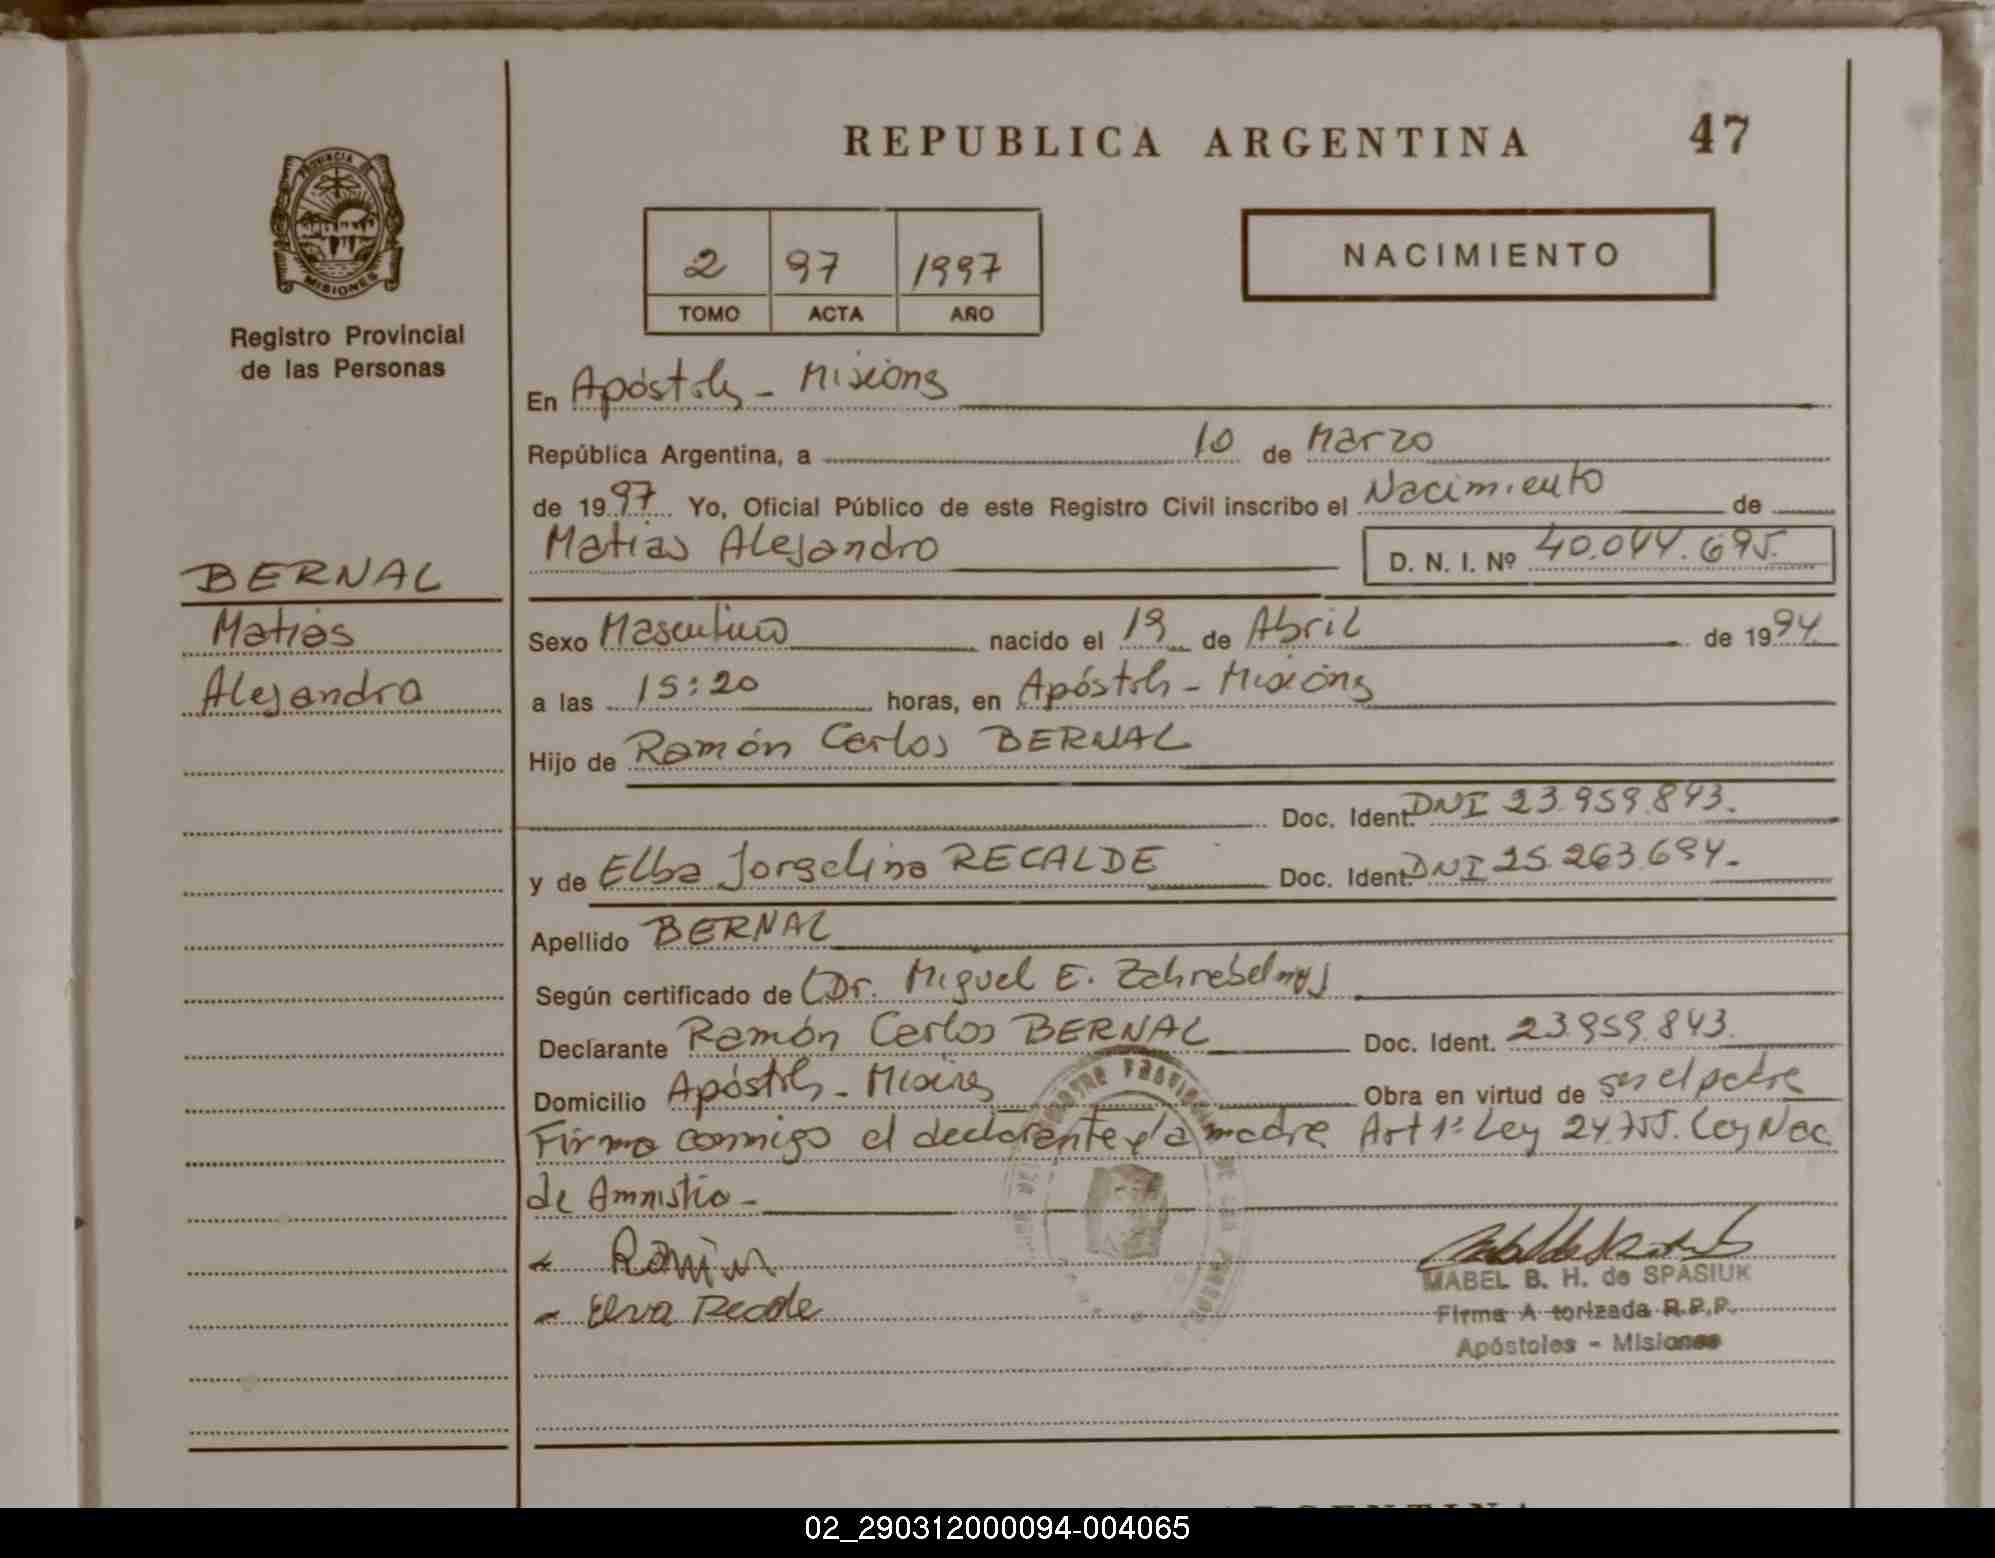 REPUBLICA ARGENTINA
47
PROVINCIA DE
MISIONES
Registro Provincial
de las Personas
2 97 1997
TOMO ACTA AÑO
NACIMIENTO
En Apóstoles - Misiones
República Argentina, a 10 de Marzo
de 1997 Yo, Oficial Público de este Registro Civil inscribo el Nacimiento de
Matias Alejandro D. N. I. Nº 40.044.695.
BERNAL
Matias
Alejandro
Sexo Masculino nacido el 19 de Abril de 1994
a las 15:20 horas, en Apóstoles - Misiones
Hijo de Ramón Carlos BERNAL
Doc. Ident. DNI 23.959.843.
y de Elba Jorgelina RECALDE Doc. Ident. DNI 25.263.694.
Apellido BERNAL
Según certificado de (Dr. Miguel E.
Declarante Ramón Carlos BERNAL Doc. Ident. 23.959.843.
Domicilio Apóstoles - Misiones Obra en virtud de ser el padre
Firma conmigo el declarante y la madre Art 1º Ley 24.755. Ley Nac.
de Amnistia -
Elva Recalde
MABEL B. H. de SPASIUK
Firma A torizada R.P.P.
Apóstoles - Misiones
02_290312000094-004065